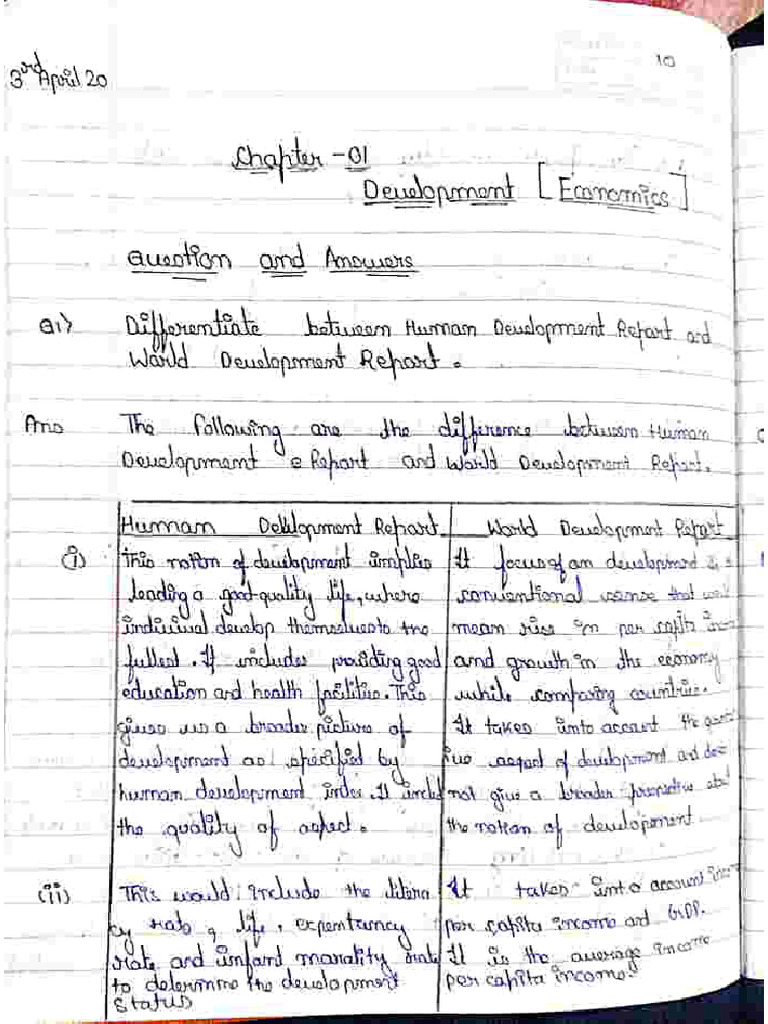 10
3rd April 20
Chapter -01
Development [Economics]
Question and Answers
Q1) Differentiate between Human Development Report and
World Development Report.
Ans The following are the difference between Human
Development Report and World Development Report.
Human Development Report
(i) This notion of development implies
leading a good quality life, where
individual develop themselves to the
fullest. It includes providing good
education and health facilities. This
gives us a broader picture of
development as specified by
human development index. It
the quality of aspect.
(ii) This would include the litera
cy rate, life, expentancy
rate and infand marality rate
to determine the development
status
World Development Report
It focus of an development
conventional sense that
mean rise in per capita
and growth in the economy
while comparing countries.
It takes into account the
aspect of development and
not give a broader perspective about
the notion of development
It takes into account
per capita income and GDP.
It is the average income
per capita income.